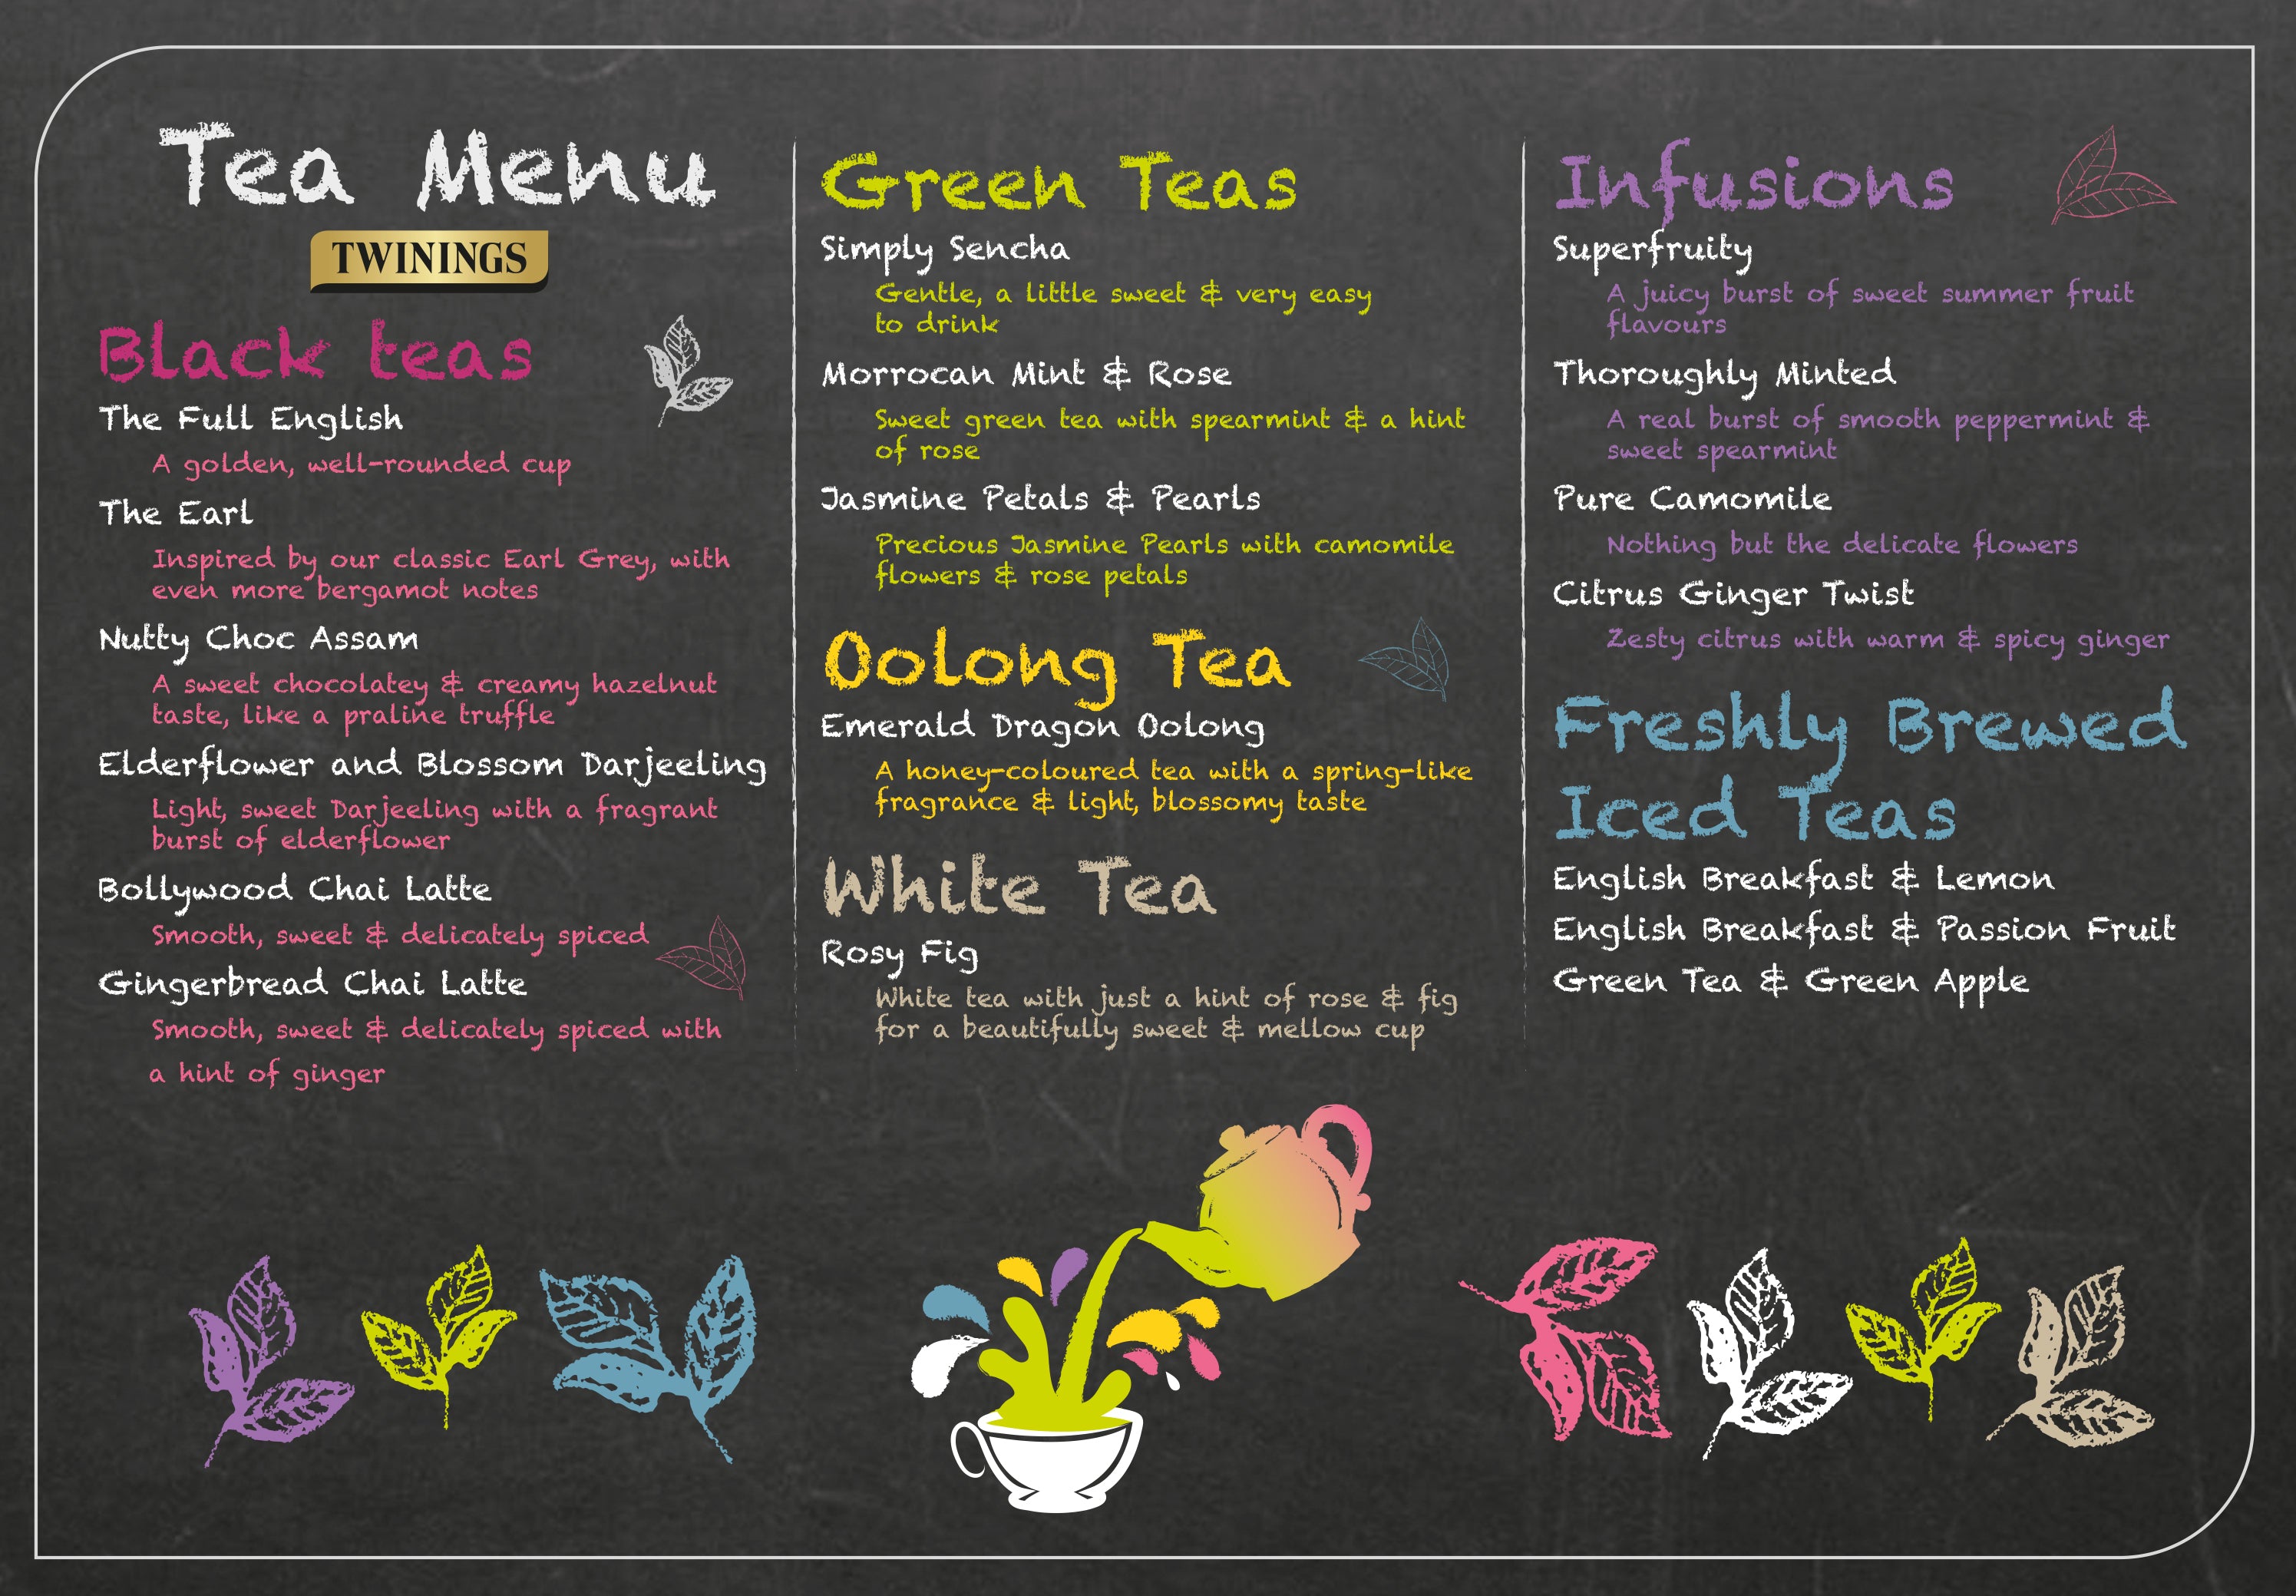 Tea Menu
TWININGS
Black teas
The Full English
A golden, well-rounded cup
The Earl
Inspired by our classic Earl Grey, with
even more bergamot notes
Nutty Choc Assam
A sweet chocolatey & creamy hazelnut
taste, like a praline truffle
Elderflower and Blossom Darjeeling
Light, sweet Darjeeling with a fragrant
burst of elderflower
Bollywood Chai Latte
Smooth, sweet & delicately spiced
Gingerbread Chai Latte
Smooth, sweet & delicately spiced with
a hint of ginger
Green Teas
Simply Sencha
Gentle, a little sweet & very easy
to drink
Morrocan Mint & Rose
Sweet green tea with spearmint & a hint
of rose
Jasmine Petals & Pearls
Precious Jasmine Pearls with camomile
flowers & rose petals
Oolong Tea
Emerald Dragon Oolong
A honey-coloured tea with a spring-like
fragrance & light, blossomy taste
White Tea
Rosy Fig
White tea with just a hint of rose & fig
for a beautifully sweet & mellow cup
Infusions
Superfruity
A juicy burst of sweet summer fruit
flavours
Thoroughly Minted
A real burst of smooth peppermint &
sweet spearmint
Pure Camomile
Nothing but the delicate flowers
Citrus Ginger Twist
Zesty citrus with warm & spicy ginger
Freshly Brewed
Iced Teas
English Breakfast & Lemon
English Breakfast & Passion Fruit
Green Tea & Green Apple